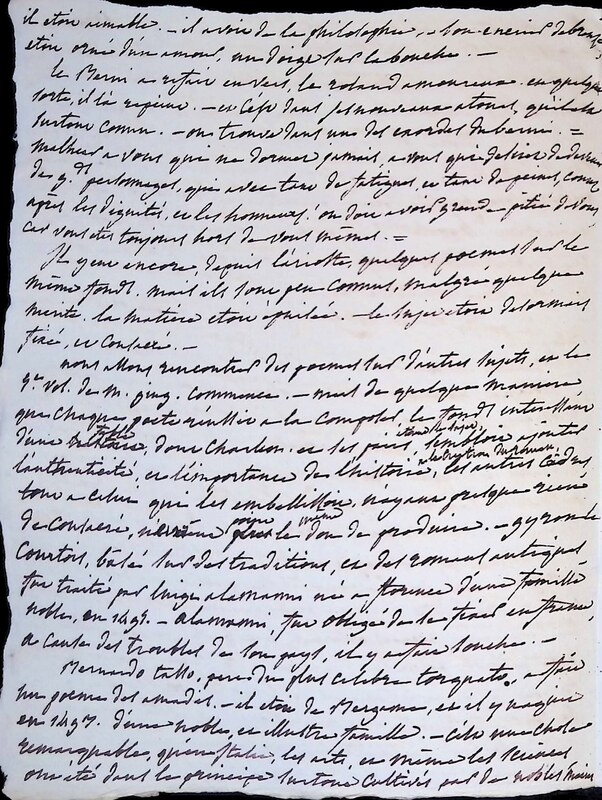 il etoit aimable. - il avoit de la philosophie, son encrier de bronze
etoit orné d'un amour, un doigt sur la bouche. -
le Berni a refait en vers, le roland amoureux. en quelque
sorte, il l'a rajeuni. - et c'est dans ses nouveaux atours, qu'il est
surtout connu. - on trouve dans un des exordes du berni. =
malheur a vous qui ne dormez jamais, a vous qui desirez de devenir
de gds personnages, qui avec tant de fatigues, et tant de peines, courez
après les dignités, et les honneurs! on doit avoir grande pitié de vous
car vous etes toujours hors de vous mêmes. =
Il y eut encore, depuis l'arioste, quelques poemes sur le
même fond. mais ils sont peu connus, malgré quelque
merite. la matiere etoit épuisée. - le sujet etoit desormais
fixé, et consacré. -
nous allons rencontrer des poemes sur d'autres sujets, et le
vol. de m. ging. commence. - mais de quelque maniere
que chaque poete réussisse a la composer, le fond interessant
d'une fable, dont Charlem. et ses pairs, etant le sujet, sembloit ajouter
l'authenticité, et l'importance de l'histoire, a la creation du roman, les autres
tout a celui qui les embellissoit, n'ayant presque rien
de consacré, n'eurent point même le don de produire. - gyron le
Courtois, basé sur des traditions, et des romans antiques
fut traité par luigi alamanni né a florence d'une famille
noble, en 1495. - alamanni, fut obligé de se fixer en france,
a cause des troubles de son pays, il y a fait souche. -
Bernardo tasso, pere du plus celebre torquato, a fait
un poeme des amadis. - il etoit de Bergame, et il y naquit
en 1493. d'une noble, et illustre famille. - c'est une chose
remarquable, qu'en Italie, les arts, et même les sciences
ont été dans le principe surtout cultivés par de nobles mains